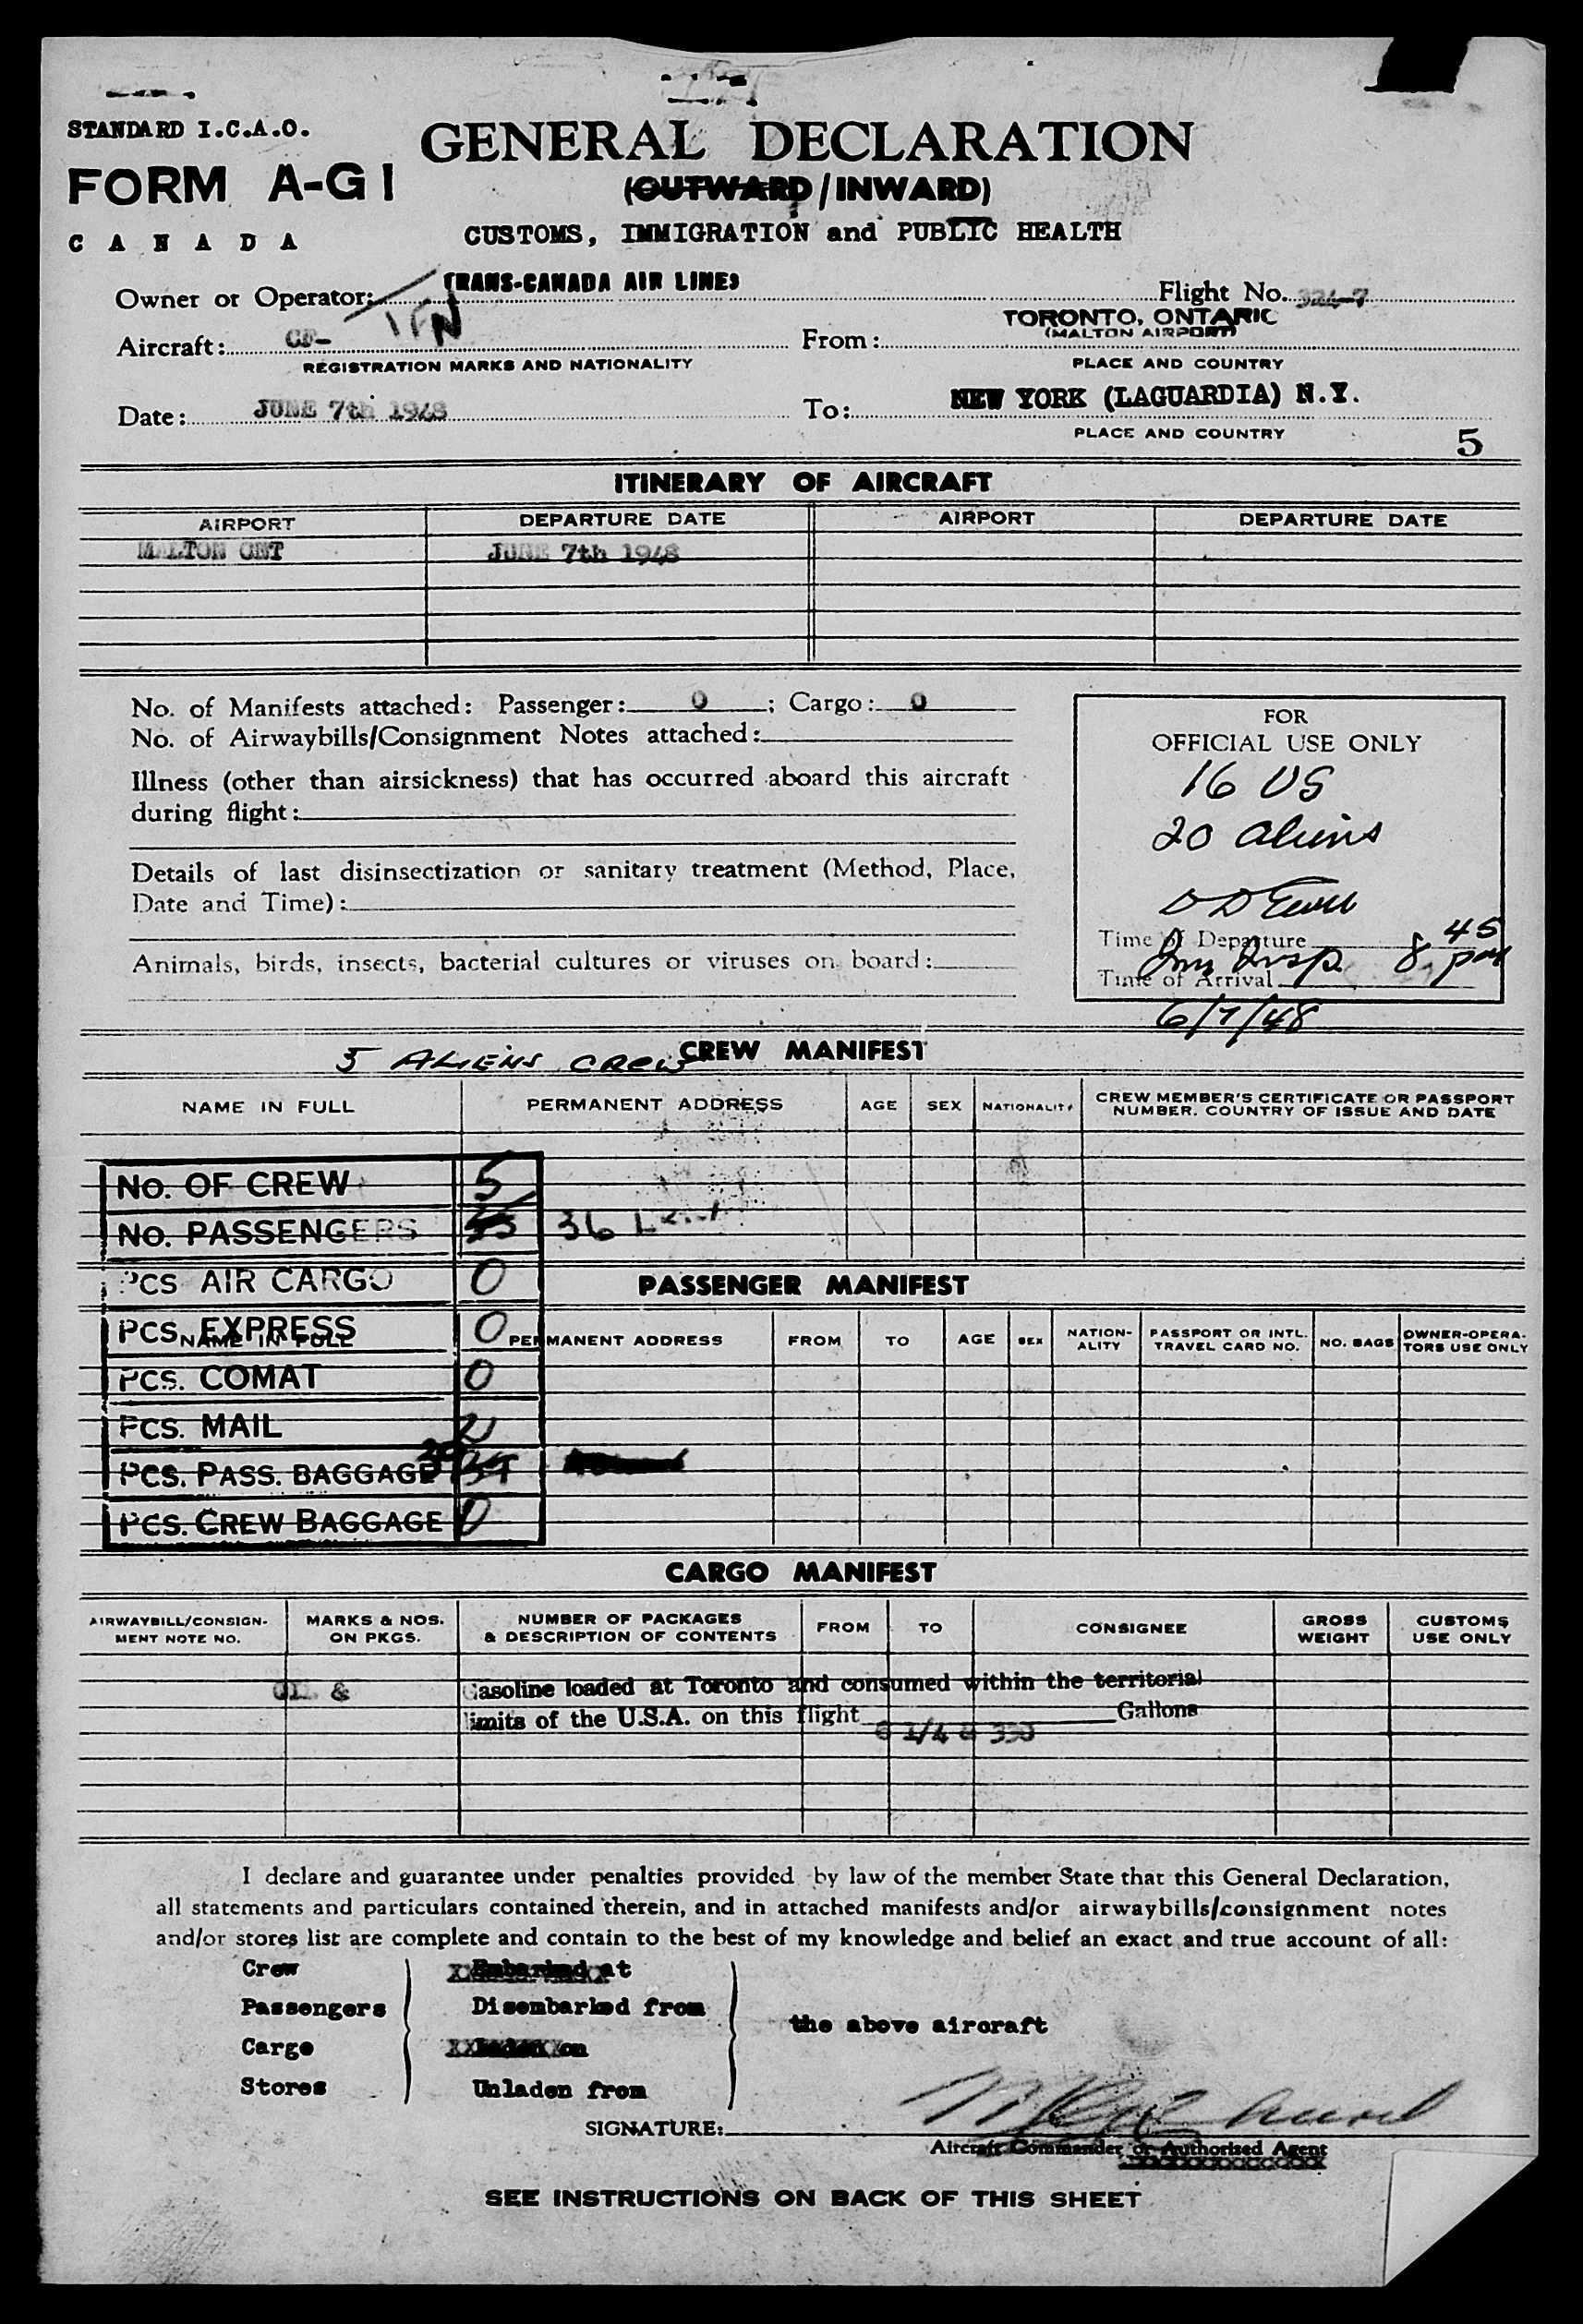 STANDARD I.C.A.O.
FORM A-G1
CANADA
GENERAL DECLARATION
(OUTWARD/INWARD)
CUSTOMS, IMMIGRATION and PUBLIC HEALTH
Owner or Operator: TRANS-CANADA AIR LINES
Flight No. 324-7
Aircraft: CF- TFN
REGISTRATION MARKS AND NATIONALITY
From: TORONTO, ONTARIO
(MALTON AIRPORT)
PLACE AND COUNTRY
Date: JUNE 7th 1948
To: NEW YORK (LAGUARDIA) N.Y.
PLACE AND COUNTRY
5
ITINERARY OF AIRCRAFT
AIRPORT DEPARTURE DATE AIRPORT DEPARTURE DATE
MALTON ONT JUNE 7th 1948
No. of Manifests attached: Passenger: 0 ; Cargo: 0
No. of Airwaybills/Consignment Notes attached:
Illness (other than airsickness) that has occurred aboard this aircraft
during flight:
Details of last disinsectization or sanitary treatment (Method, Place,
Date and Time):
Animals, birds, insects, bacterial cultures or viruses on board:
FOR
OFFICIAL USE ONLY
16 US
20 aliens
Time of Departure
Imm Insp. 8 45 pm
Time of Arrival
6/7/48
5 ALIENS CREW
CREW MANIFEST
NAME IN FULL PERMANENT ADDRESS AGE SEX NATIONALITY CREW MEMBER'S CERTIFICATE OR PASSPORT
NUMBER, COUNTRY OF ISSUE AND DATE
No. OF CREW 5
No. PASSENGERS 36
PCS AIR CARGO 0
PASSENGER MANIFEST
PCS. EXPRESS 0
NAME IN FULL PERMANENT ADDRESS FROM TO AGE SEX NATION-
ALITY PASSPORT OR INTL.
TRAVEL CARD NO. NO. BAGS OWNER-OPERA-
TORS USE ONLY
PCS. COMAT 0
PCS. MAIL 2
PCS. PASS. BAGGAGE
PCS. CREW BAGGAGE 0
CARGO MANIFEST
AIRWAYBILL/CONSIGN-
MENT NOTE NO. MARKS & NOS.
ON PKGS. NUMBER OF PACKAGES
& DESCRIPTION OF CONTENTS FROM TO CONSIGNEE GROSS
WEIGHT CUSTOMS
USE ONLY
OIL & Gasoline loaded at Toronto and consumed within the territorial
limits of the U.S.A. on this flight Gallons
6 1/4 & 330
I declare and guarantee under penalties provided by law of the member State that this General Declaration,
all statements and particulars contained therein, and in attached manifests and/or airwaybills/consignment notes
and/or stores list are complete and contain to the best of my knowledge and belief an exact and true account of all:
Crew Embarked at
Passengers Disembarked from
the above aircraft
Cargo Laden on
Stores Unladen from
SIGNATURE:
Aircraft Commander or Authorised Agent
SEE INSTRUCTIONS ON BACK OF THIS SHEET